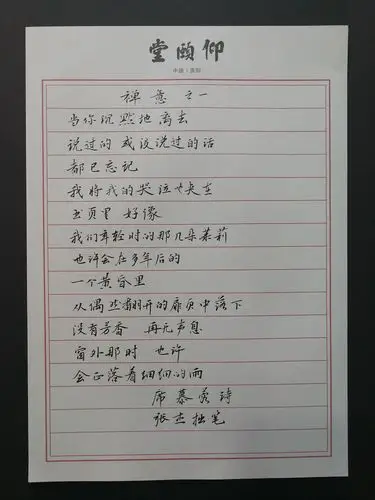 仰頤堂
禅意 之一
当你沉默地离去
说过的 或没说过的话
都已忘记
我将我的哭泣也夹在
书页里 好像
我们年轻时的那几朵茉莉
也许会在多年后的
一个黄昏里
从偶然翻开的扉页中落下
没有芳香 再无声息
窗外那时 也许
会正落着细细的雨
席慕蓉诗
张杰拙笔